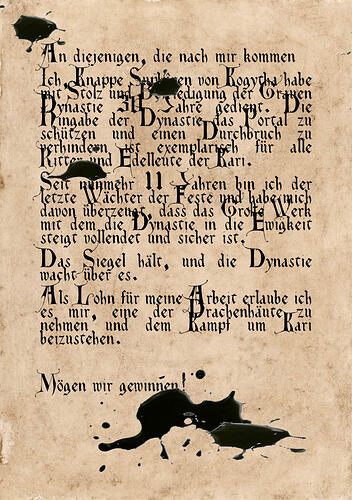 An diejenigen, die nach mir kommen
Ich, Knappe von Rogytha habe
mit Stolz und der Grauen
Dynastie Jahre gedient. Die
Hingabe der Dynastie das Portal zu
schützen und einen Durchbruch zu
verhindern ist exemplarisch für alle
Ritter und Edelleute der Kari.
Seit nunmehr 11 Jahren bin ich der
letzte Wächter der Feste und habe mich
davon überzeugt, dass das Große Werk
mit dem die Dynastie in die Ewigkeit
steigt vollendet und sicher ist.
Das Siegel hält, und die Dynastie
wacht über es.
Als Lohn für meine Arbeit erlaube ich
es mir, eine der Drachenhäute zu
nehmen und dem Kampf um Kari
beizustehen.
Mögen wir gewinnen!